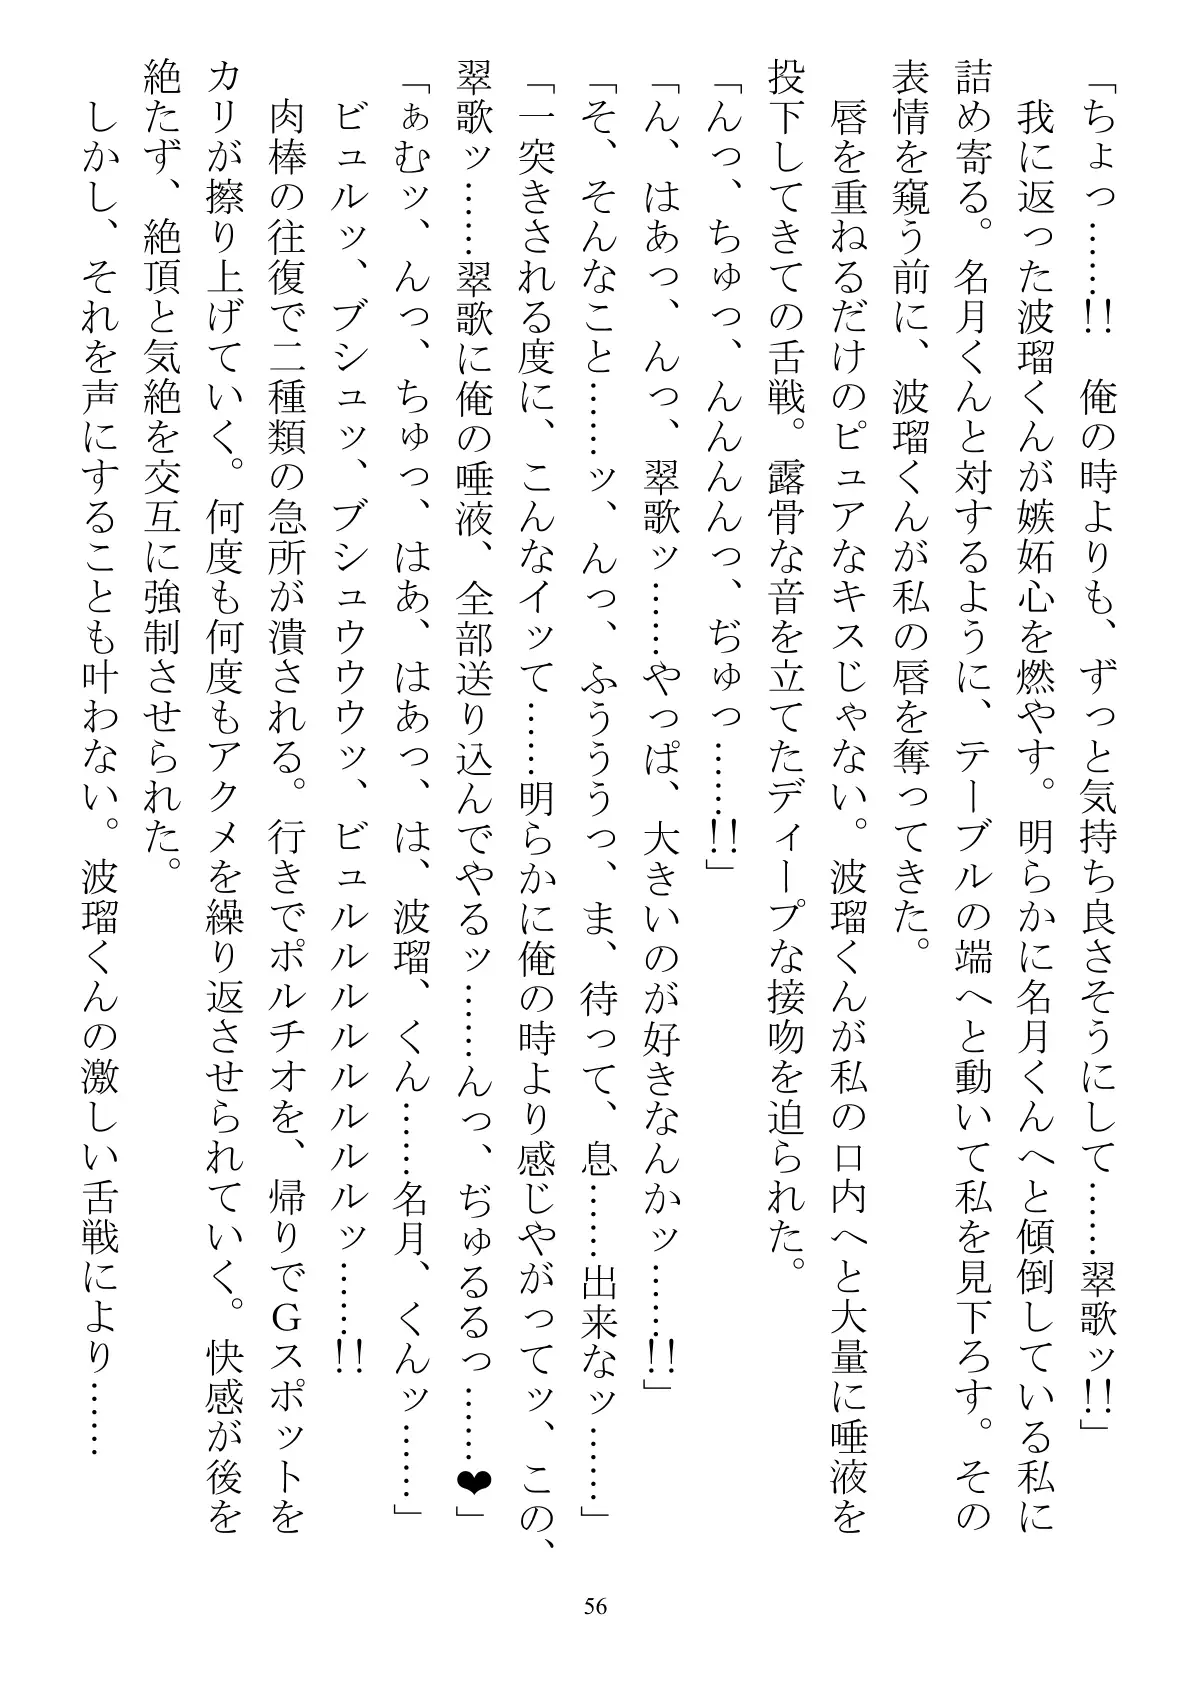 「ちょっ……!!　俺の時よりも、ずっと気持ち良さそうにして……翠歌ッ!!」
　我に返った波瑠くんが嫉妬心を燃やす。明らかに名月くんへと傾倒している私に
詰め寄る。名月くんと対するように、テーブルの端へと動いて私を見下ろす。その
表情を窺う前に、波瑠くんが私の唇を奪ってきた。
　唇を重ねるだけのピュアなキスじゃない。波瑠くんが私の口内へと大量に唾液を
投下してきての舌戦。露骨な音を立てたディープな接吻を迫られた。
「んっ、ちゅっ、んんんっ、ぢゅっ……!!」
「ん、はあっ、んっ、翠歌ッ……やっぱ、大きいのが好きなんかッ……!!」
「そ、そんなこと……ッ、んっ、ふううっ、ま、待って、息……出来なッ……」
「一突きされる度に、こんなイッて……明らかに俺の時より感じやがってッ、この、
翠歌ッ……翠歌に俺の唾液、全部送り込んでやるッ……んっ、ぢゅるるっ……❤」
「ぁむッ、んっ、ちゅっ、はあ、はあっ、は、波瑠、くん……名月、くんッ……」
　ビュルッ、ブシュッ、ブシュウウウッ、ビュルルルルルルルッ……!!
　肉棒の往復で二種類の急所が潰される。行きでポルチオを、帰りでＧスポットを
カリが擦り上げていく。何度も何度もアクメを繰り返させられていく。快感が後を
絶たず、絶頂と気絶を交互に強制させられた。
　しかし、それを声にすることも叶わない。波瑠くんの激しい舌戦により……
56